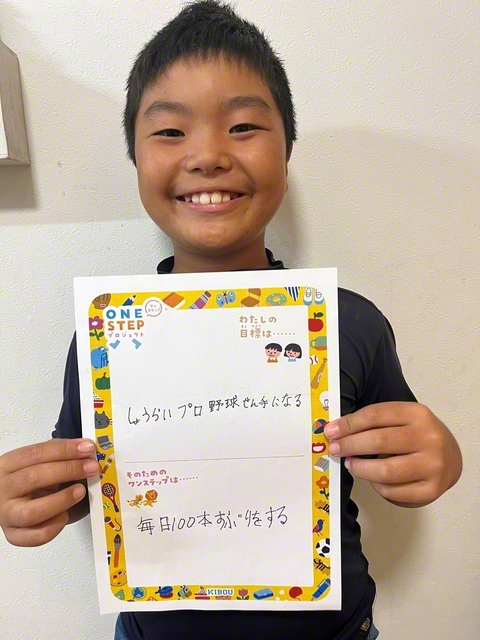 ONE
STEP
プロジェクト
わたしの
目標は……
しょうらい プロ 野球せん手になる
そのための
ワンステップは……
毎日100本すぶりをする
KIBOU